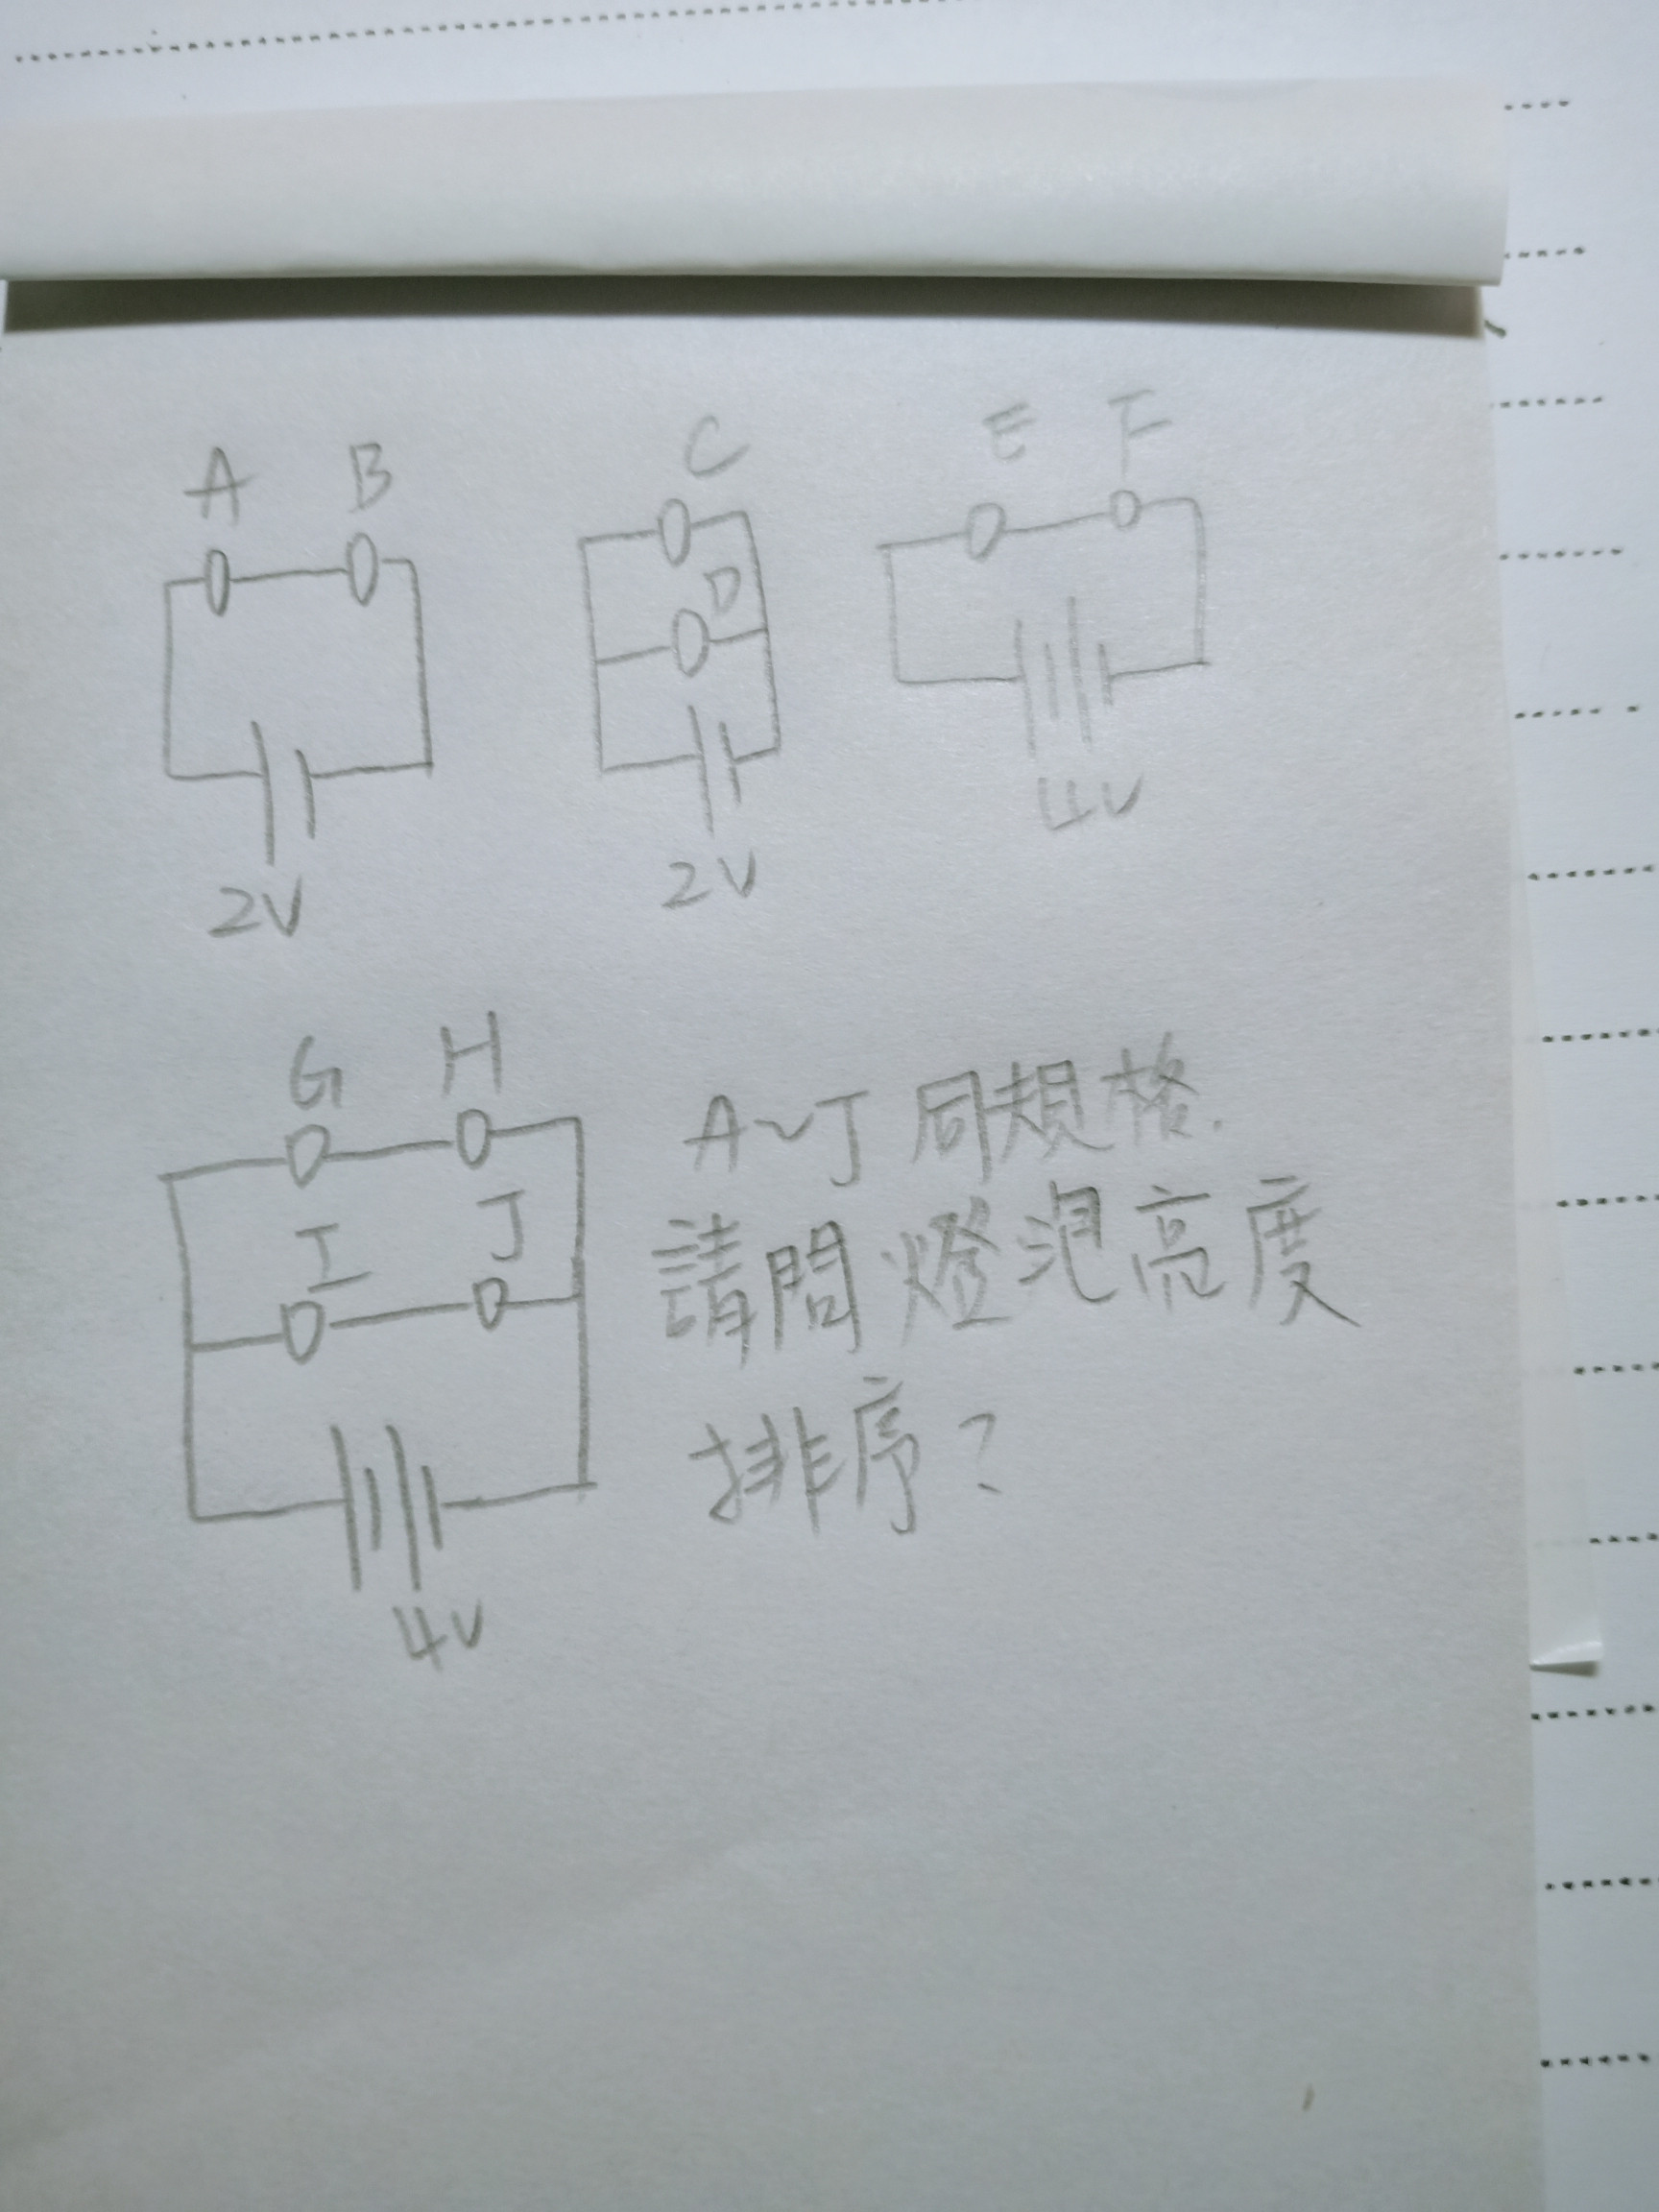 A B
C
D
E F
2V
2V
4V
G H
I J
4V
A~J 同規格.
請問燈泡亮度
排序?